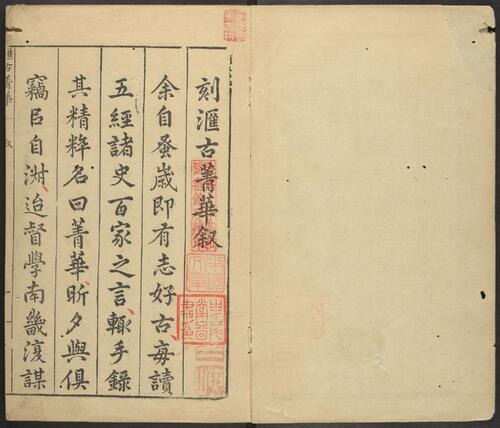 刻滙古菁華叙
余自蚤歲即有志好古每讀
五經諸史百家之言輙手錄
其精粹名曰菁華昕夕與俱
竊㠯自淑迨督學南畿復謀